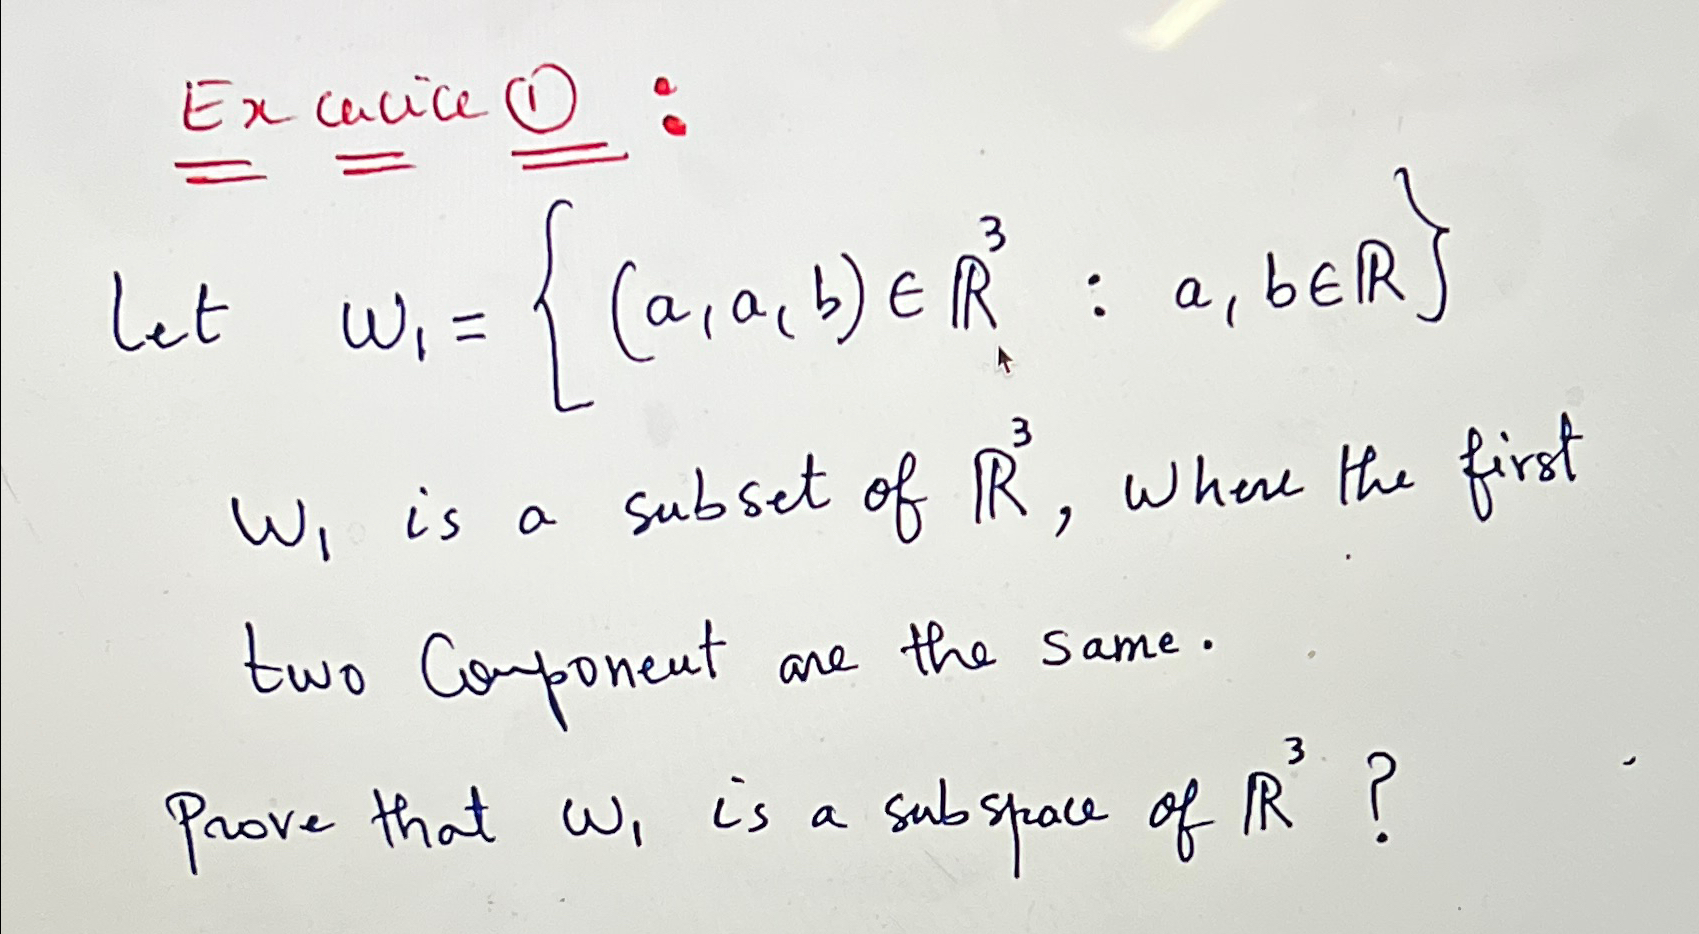 Exercice ① :
Let W₁ = { (a, a, b) ∈ ℝ³ : a, b ∈ ℝ }
W₁ is a subset of ℝ³, where the first
two Component are the same.
Prove that W₁ is a subspace of ℝ³ ?